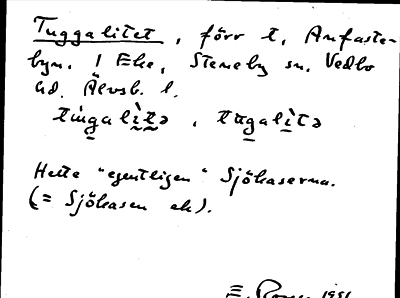 Tuggalitet, förr t. Anfaste-
byn. 1 Eke, Steneby sn. Vedbo
hd. Älvsb. l.
tuŋgalìtə, tuŋgalìtə
Hette "egentligen" Sjökaserna.
(= Sjökasen ek).
E. 1951